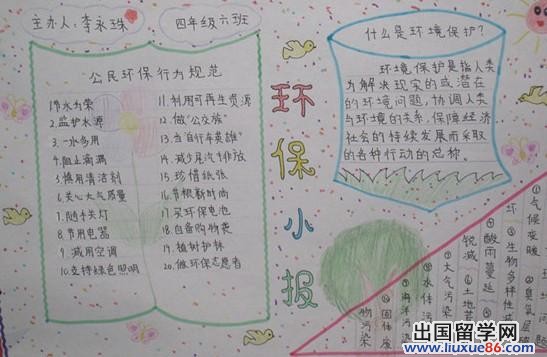 主办人：李永珠
四年级六班
公民环保行为规范
1.节水为荣
2.监护水源
3.一水多用
4.阻止滴漏
5.慎用清洁剂
6.关心大气质量
7.随手关灯
8.节用电器
9.减用空调
10.支持绿色照明
11.利用可再生资源
12.做“公交族”
13.当“自行车英雄”
14.减少尾汽排放
15.珍惜纸张
16.节粮新时尚
17.买环保电池
18.自备购物袋
19.植树护林
20.做环保志愿者
环保小报
什么是环境保护？
环境保护是指人类
为解决现实的或潜在
的环境问题，协调人类
与环境的关系，保障经济
社会的持续发展而采取
的各种行动的总称。
①气候变暖
②臭氧层破
③生物多样性减
④酸雨蔓延
⑤
锐减
⑥土地荒
⑦大气污染
⑧水体污
⑨海洋污
⑩固体废
物污染
出国留学网
www.liuxue86.com